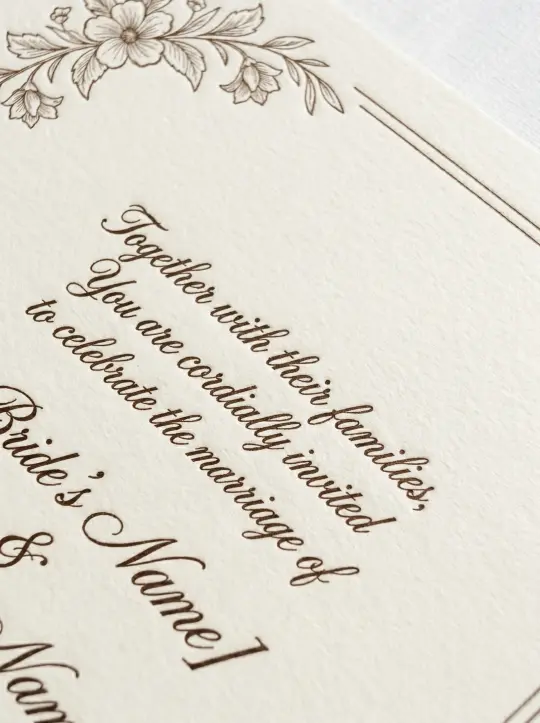 Together with their families,
You are cordially invited
to celebrate the marriage of
Bride's Name]
&
Nam